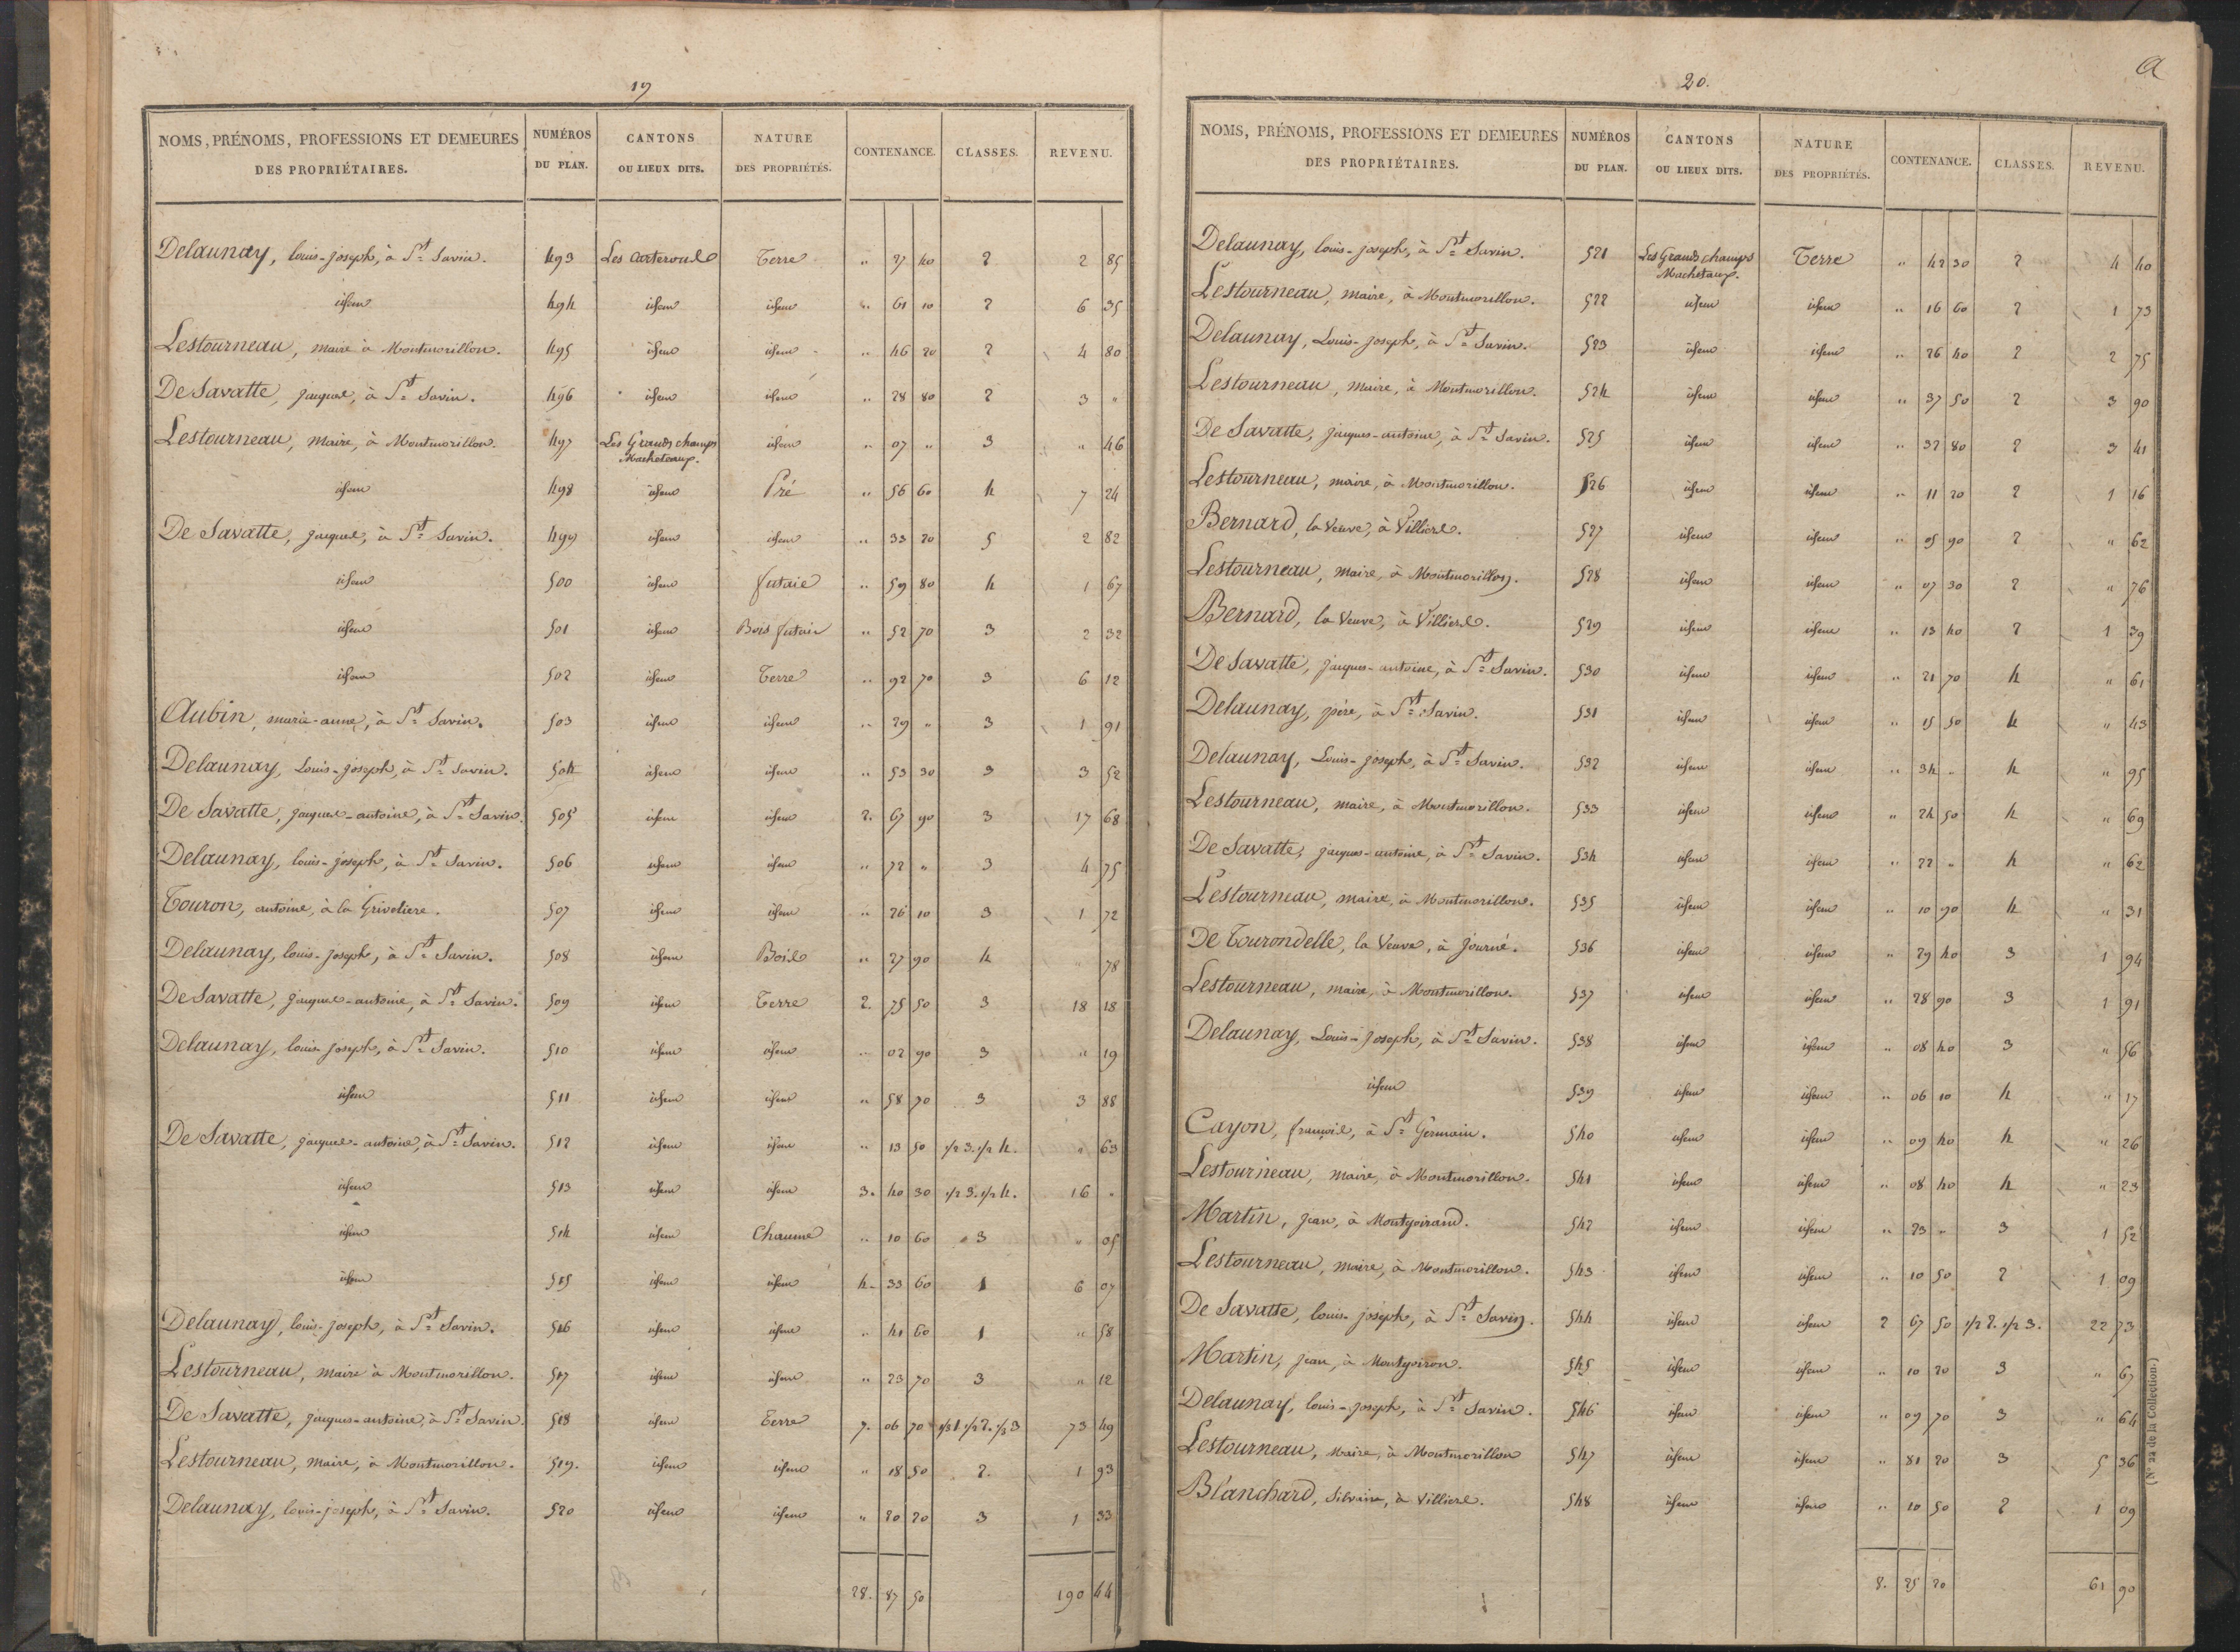 19
NOMS, PRÉNOMS, PROFESSIONS ET DEMEURES DES PROPRIÉTAIRES. NUMÉROS DU PLAN. CANTONS OU LIEUX DITS. NATURE DES PROPRIÉTÉS. CONTENANCE. CLASSES. REVENU.
Delaunay, louis-joseph, à St Savin. 493 Les Carteroules Terre " 27 40 2 2 85
idem 494 idem idem " 61 10 2 6 35
Lestourneau, maire à Montmorillon. 495 idem idem " 46 20 2 4 80
De Savatte, jacques, à St Savin. 496 idem idem " 28 80 2 3 "
Lestourneau, maire, à Montmorillon. 497 Les Grands champs Machetaup. idem " 07 " 3 " 46
idem 498 idem Pré " 56 60 4 7 24
De Savatte, jacques, à St Savin. 499 idem idem " 33 20 5 2 82
idem 500 idem futaie " 59 80 4 1 67
idem 501 idem Bois futaie " 52 70 3 2 32
idem 502 idem Terre " 92 70 3 6 12
Aubin, marie-anne, à St Savin. 503 idem idem " 29 " 3 1 91
Delaunay, Louis-joseph, à St Savin. 504 idem idem " 53 30 3 3 52
De Savatte, jacques-antoine, à St Savin. 505 idem idem 2. 67 90 3 17 68
Delaunay, louis-joseph, à St Savin. 506 idem idem " 72 " 3 4 75
Touron, antoine, à la Griveliere. 507 idem idem " 26 10 3 1 72
Delaunay, louis-joseph, à St Savin. 508 idem Bois " 27 90 4 " 78
De Savatte, jacques-antoine, à St Savin. 509 idem Terre 2. 75 50 3 18 18
Delaunay, louis-joseph, à St Savin. 510 idem idem " 02 90 3 " 19
idem 511 idem idem " 58 70 3 3 88
De Savatte, jacques-antoine, à St Savin. 512 idem idem " 13 50 1/2 3. 1/2 4. " 63
idem 513 idem idem 3. 40 30 1/2 3. 1/2 4. 16 "
idem 514 idem Chaume " 10 60 3 " 05
idem 515 idem idem 4 33 60 1 6 07
Delaunay, louis-joseph, à St Savin. 516 idem idem " 41 60 1 " 58
Lestourneau, maire à Montmorillon. 517 idem idem " 23 70 3 " 12
De Savatte, jacques-antoine, à St Savin. 518 idem Terre 7. 06 70 1/3 1. 1/3 2. 1/3 3 73 49
Lestourneau, maire, à Montmorillon. 519. idem idem " 18 50 2. 1 93
Delaunay, louis-joseph, à St Savin. 520 idem idem " 20 20 3 1 33
28. 87 50 190 44
20.
a
NOMS, PRÉNOMS, PROFESSIONS ET DEMEURES DES PROPRIÉTAIRES. NUMÉROS DU PLAN. CANTONS OU LIEUX DITS. NATURE DES PROPRIÉTÉS. CONTENANCE. CLASSES. REVENU.
Delaunay, louis-joseph, à St Savin. 521 Les Grands champs Machetaup. Terre " 42 30 2 4 40
Lestourneau, maire, à Montmorillon. 522 idem idem " 16 60 2 1 73
Delaunay, Louis-joseph, à St Savin. 523 idem idem " 26 40 2 2 75
Lestourneau, maire, à Montmorillon. 524 idem idem " 37 50 2 3 90
De Savatte, jacques-antoine, à St Savin. 525 idem idem " 32 80 2 3 41
Lestourneau, maire, à Montmorillon. 526 idem idem " 11 20 2 1 16
Bernard, la Veuve, à Villiers. 527 idem idem " 05 90 2 " 62
Lestourneau, maire, à Montmorillon. 528 idem idem " 07 30 2 " 76
Bernard, la Veuve, à Villiers. 529 idem idem " 13 40 2 1 39
De Savatte, jacques-antoine, à St Savin. 530 idem idem " 21 70 4 " 61
Delaunay, père, à St Savin. 531 idem idem " 15 50 4 " 43
Delaunay, Louis-joseph, à St Savin. 532 idem idem " 34 " 4 " 95
Lestourneau, maire, à Montmorillon. 533 idem idem " 24 50 4 " 69
De Savatte, jacques-antoine, à St Savin. 534 idem idem " 22 " 4 " 62
Lestourneau, maire, à Montmorillon. 535 idem idem " 10 90 4 " 31
De Tourondelle, la Veuve, à journé. 536 idem idem " 29 40 3 1 94
Lestourneau, maire, à Montmorillon. 537 idem idem " 28 90 3 1 91
Delaunay, Louis-Joseph, à St Savin. 538 idem idem " 08 40 3 " 56
idem 539 idem idem " 06 10 4 " 17
Cayon, françois, à St Germain. 540 idem idem " 09 40 4 " 26
Lestourneau, maire, à Montmorillon. 541 idem idem " 08 40 4 " 23
Martin, jean, à Montgoirand. 542 idem idem " 23 " 3 1 52
Lestourneau, maire, à Montmorillon. 543 idem idem " 10 50 2 1 09
De Savatte, louis-joseph, à St Savin. 544 idem idem 2 67 50 1/2 2. 1/2 3. 22 73
Martin, jean, à Montgoiron. 545 idem idem " 10 20 3 " 67
Delaunay, louis-joseph, à St Savin. 546 idem idem " 09 70 3 " 64
Lestourneau, Maire, à Montmorillon 547 idem idem " 81 20 3 5 36
Blanchard, Silvain, à Villiers. 548 idem idem " 10 50 2 1 09
8. 25 20 61 90
(N° 22 de la Collection.)